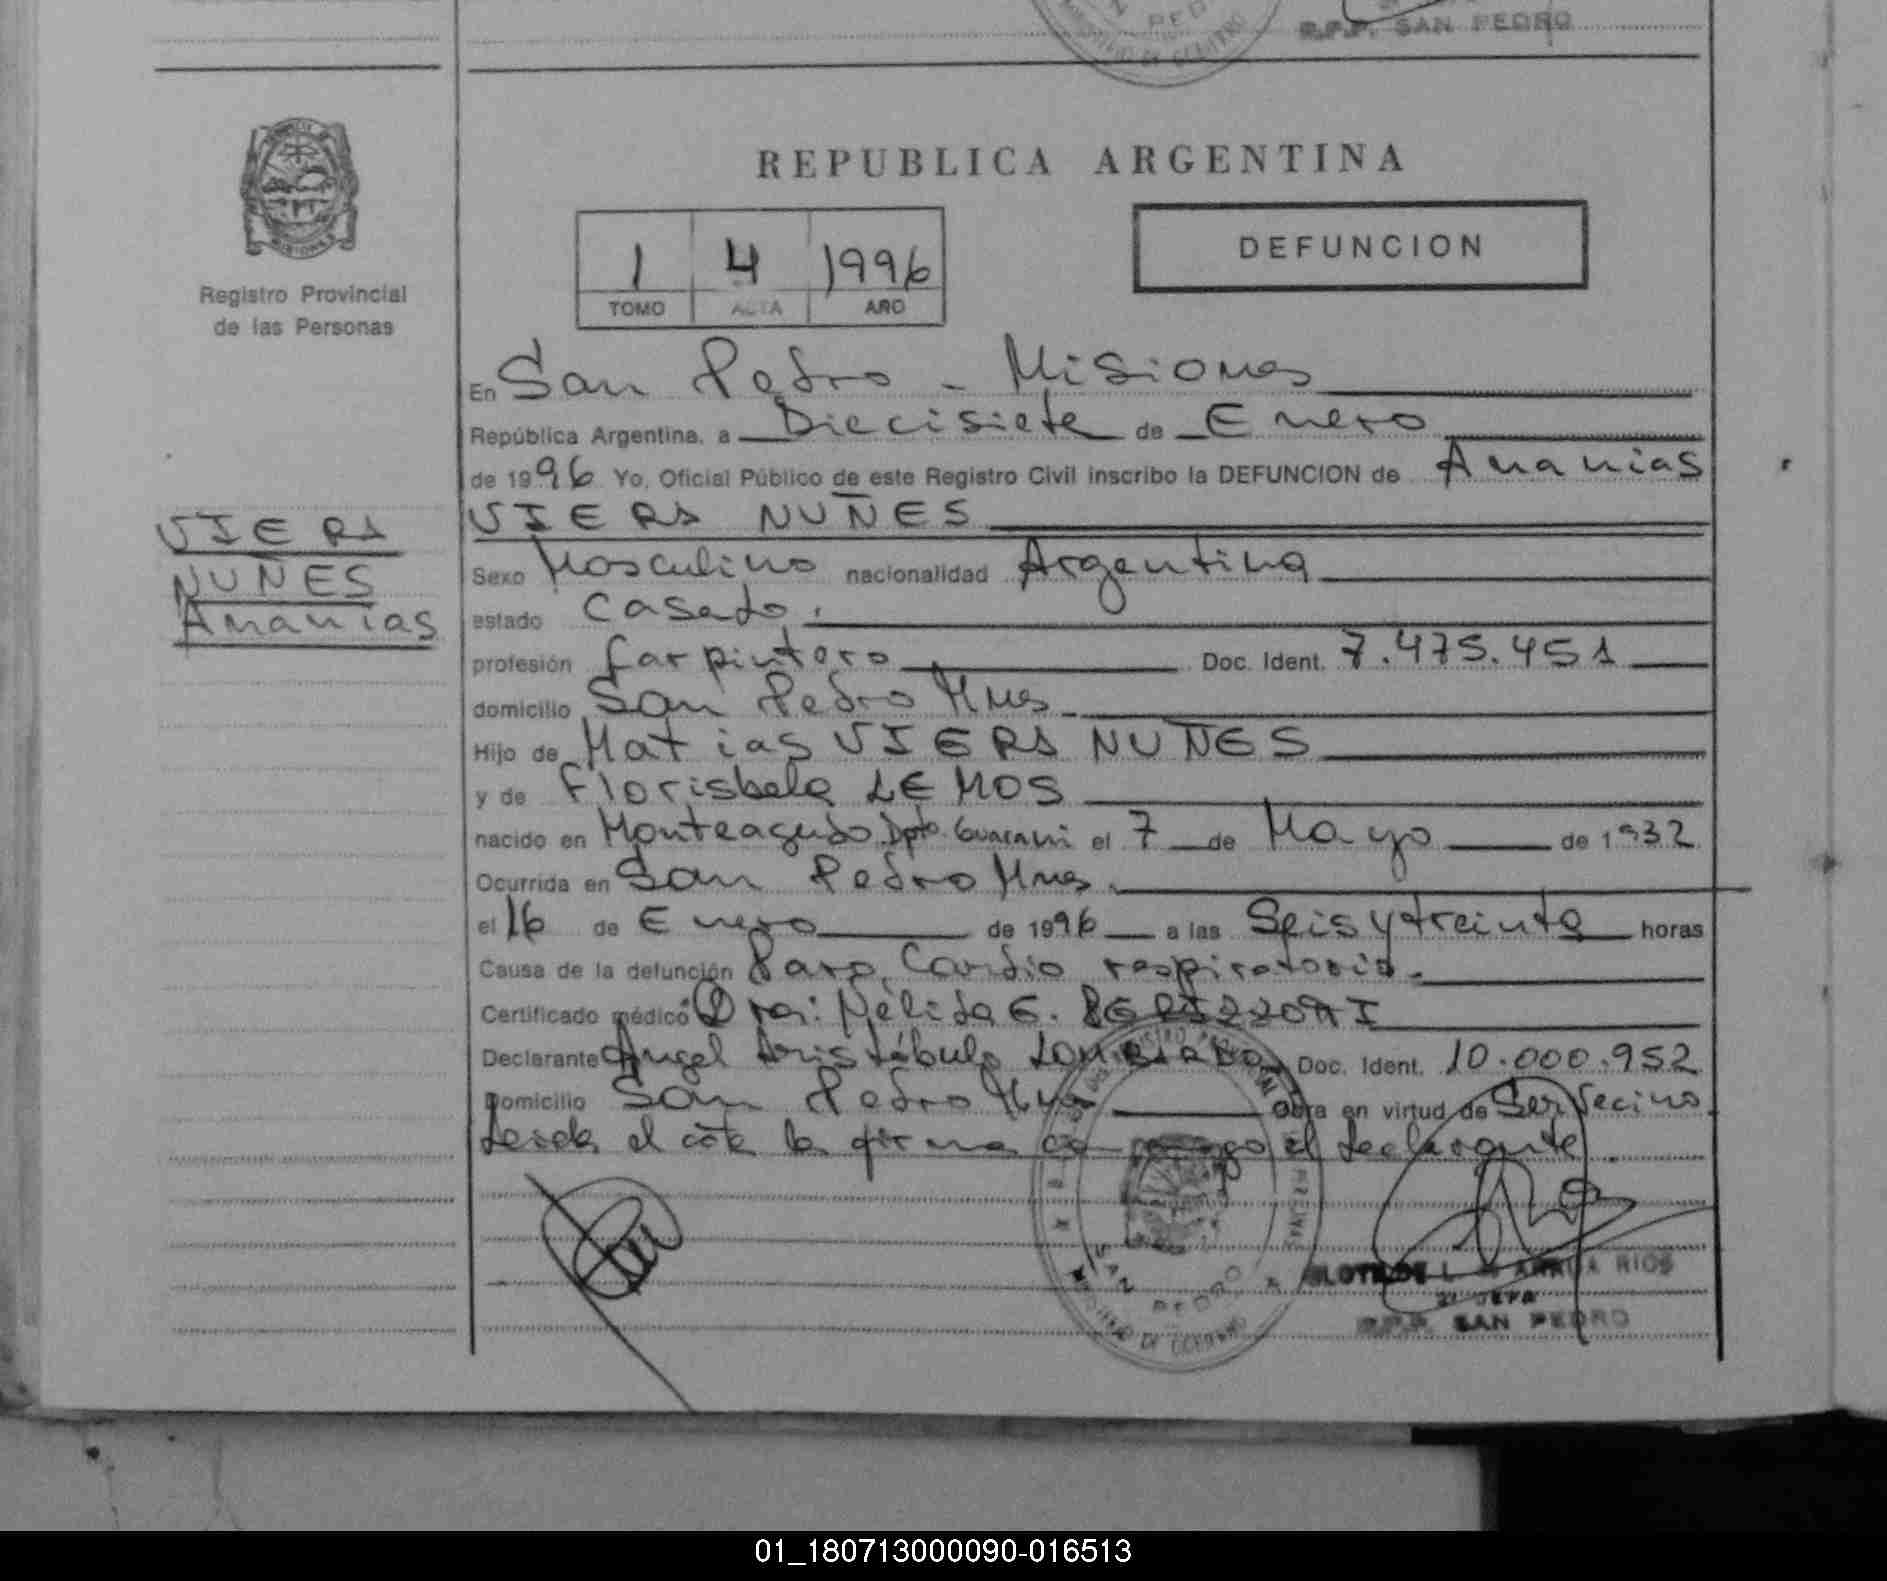 PEDRO
MINISTERIO DE GOBIERNO
R.P.P. SAN PEDRO
MISIONES
Registro Provincial
de las Personas
REPUBLICA ARGENTINA
1 4 1996
TOMO ACTA AÑO
DEFUNCION
En San Pedro - Misiones
República Argentina, a Diecisiete de Enero
de 1996 Yo, Oficial Público de este Registro Civil inscribo la DEFUNCION de Ananias
VIERA NUÑES
VIERA
NUÑES
Ananias
Sexo Masculino nacionalidad Argentina
estado Casado.
profesión Carpintero Doc. Ident. 7.475.451
domicilio San Pedro Mnes
Hijo de Matias VIERA NUÑES
y de Florisbela LEMOS
nacido en Monteagudo Dpto. Guarani el 7 de Mayo de 1932
Ocurrida en San Pedro Mnes.
el 16 de Enero de 1996 a las Seis y treinta horas
Causa de la defunción Paro Cardio respiratorio.
Certificado médico Dra: Nélida E.
Declarante Angel Aristóbulo Doc. Ident. 10.000.952
Domicilio San Pedro Mnes Obra en virtud de Ser Vecino
Leida el acta la firma conmigo el declarante.
SAN PEDRO
MINISTERIO DE GOBIERNO
L. RIOS
JEFA
R.P.P. SAN PEDRO
01_180713000090-016513